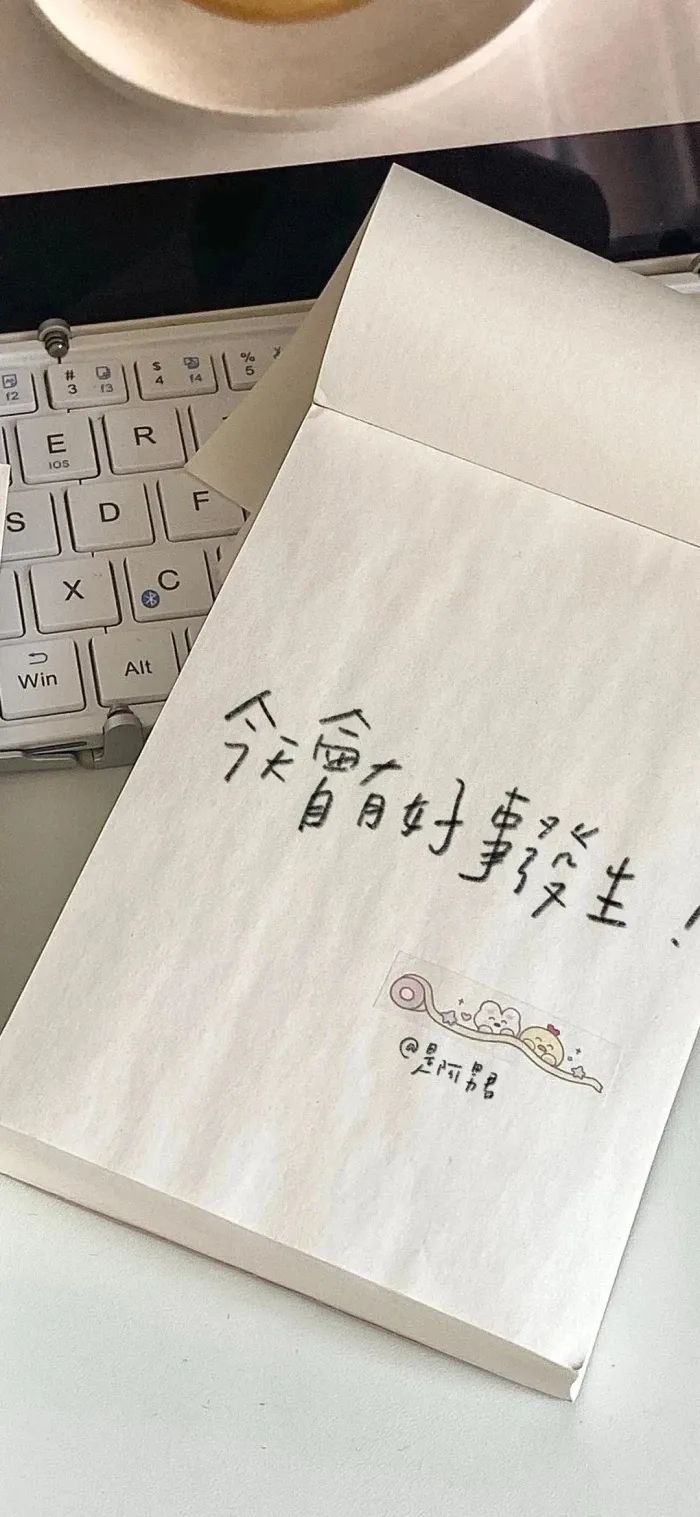 # 3 f3 $ 4 f4 % 5
f2
E R
IOS
S D F
X C
Win Alt
今天會有好事發生!
@是阿男君